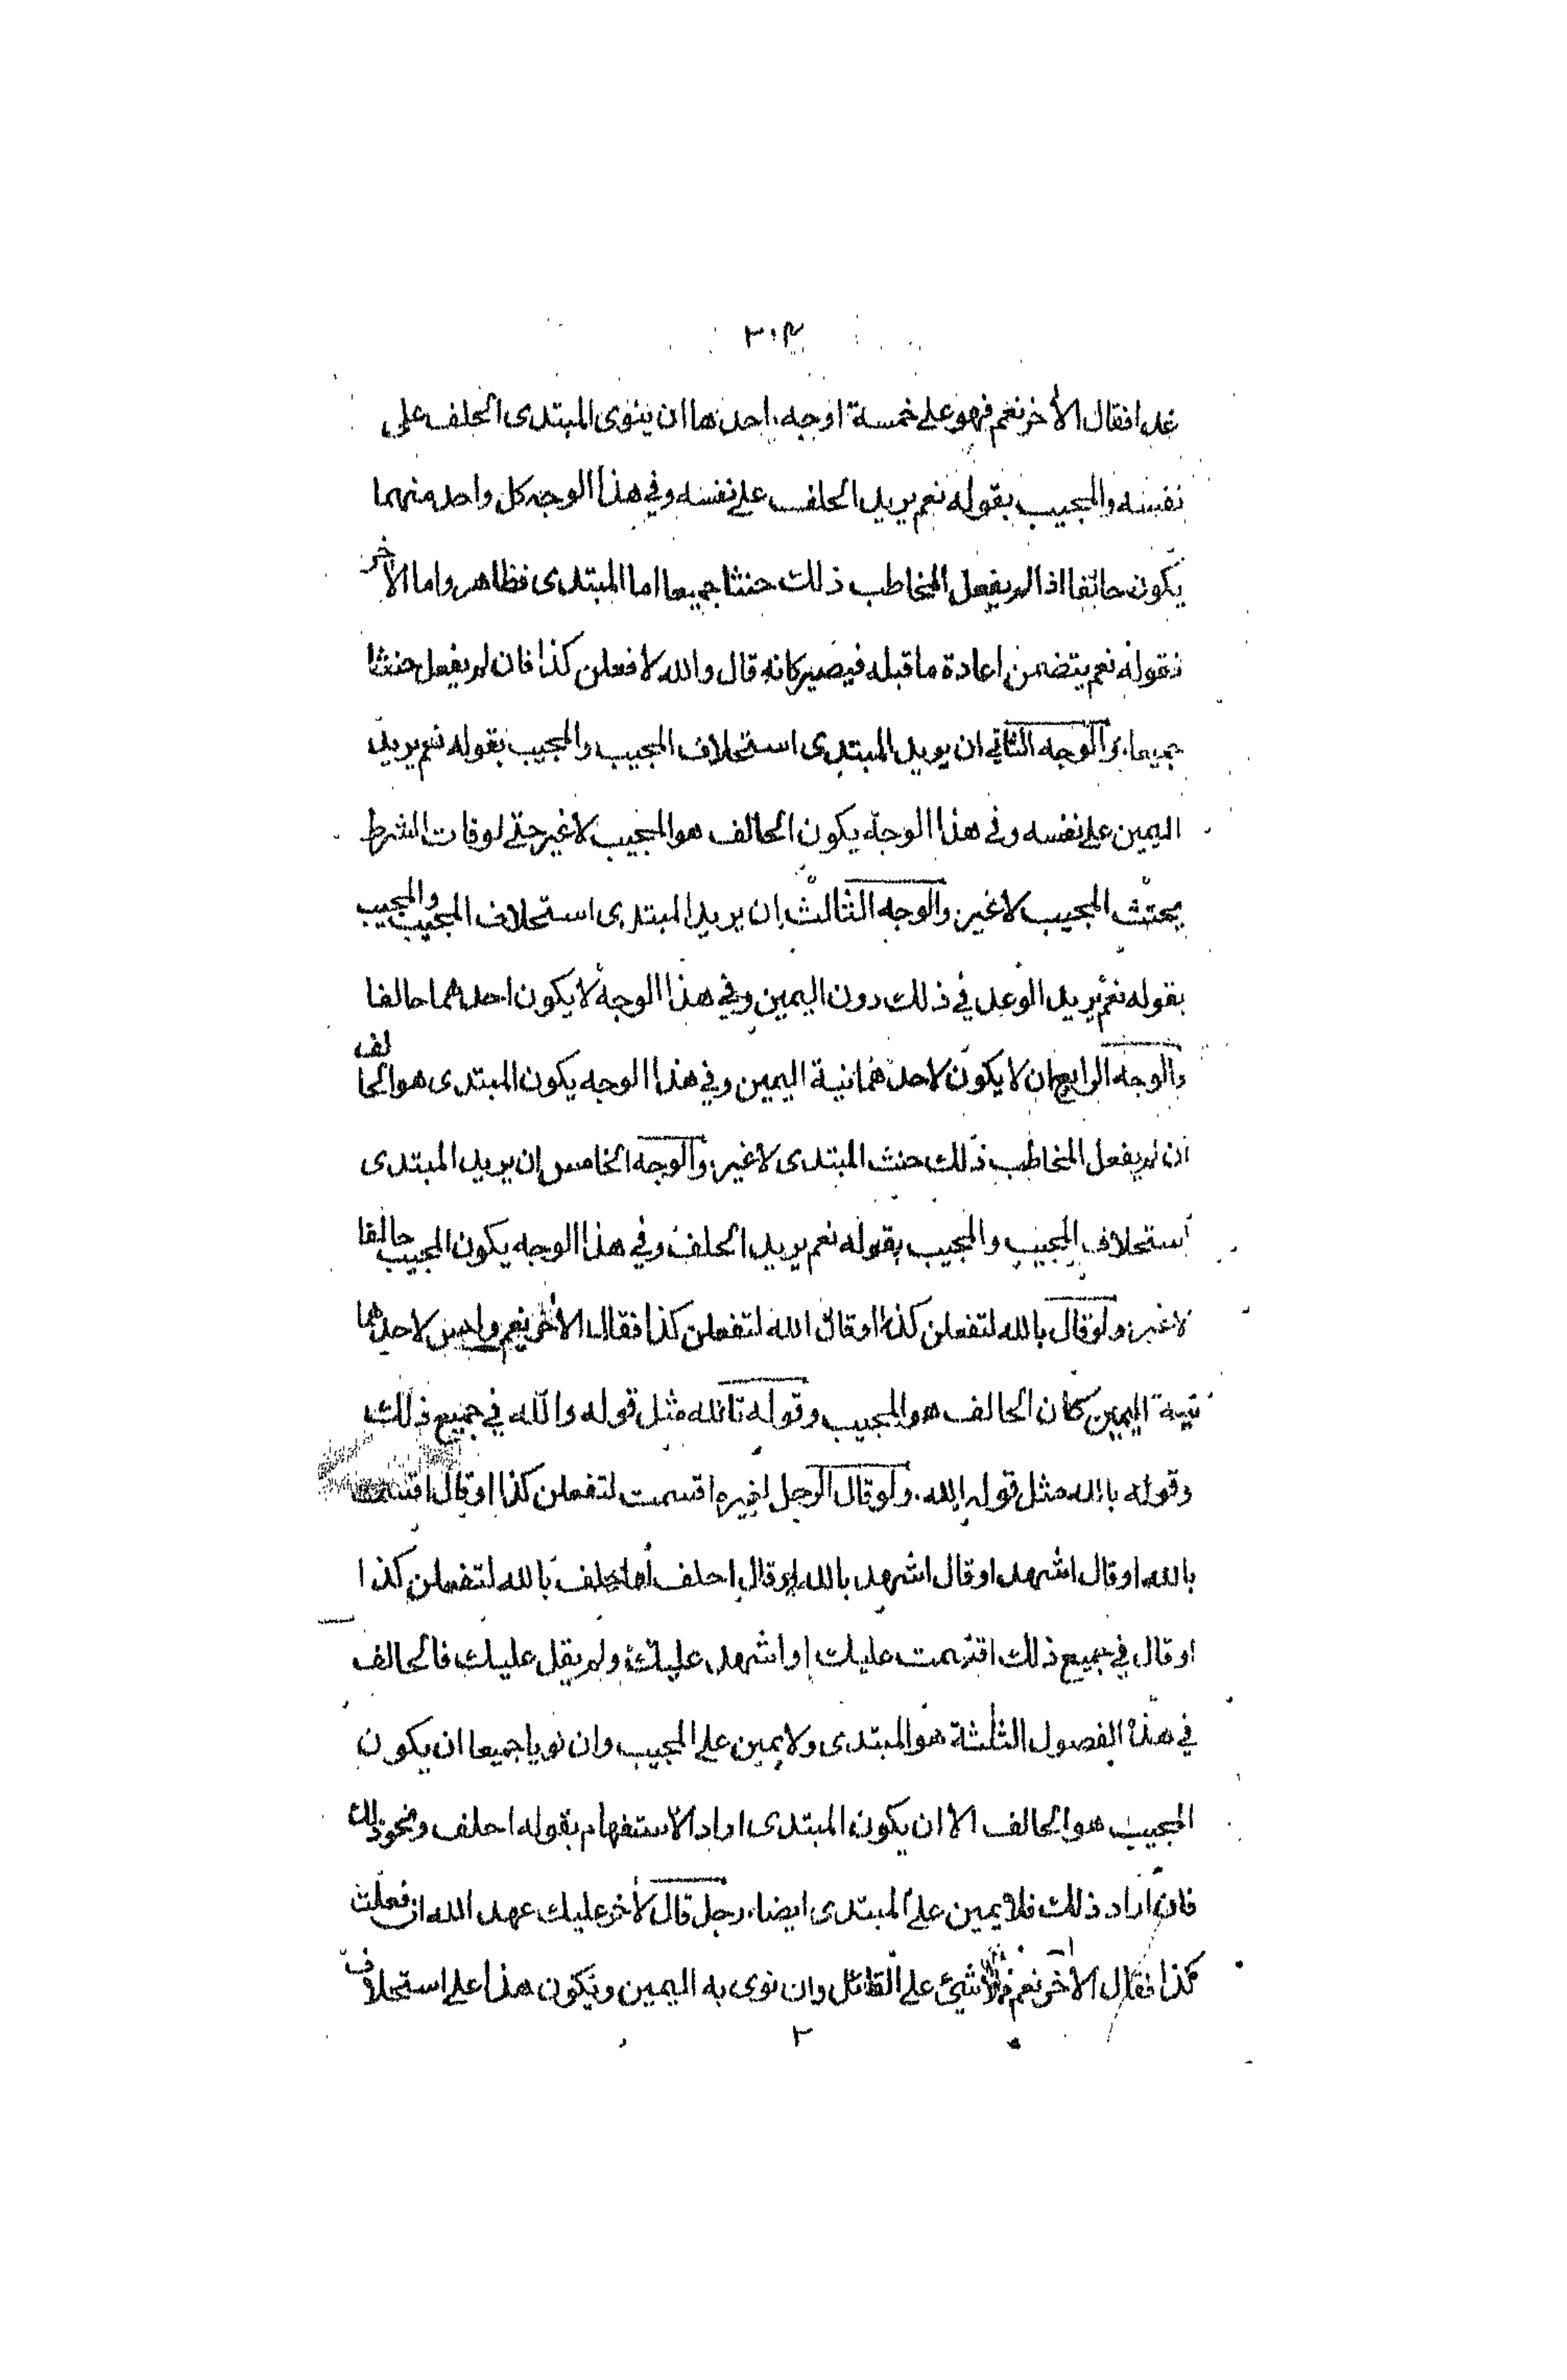 ٣٠٢
غدا فقال الاخر نعم فهو على خمسة اوجه. احدها ان ينوى المبتدى الحلف على
نفسه والمجيب بقوله نعم يريد الحلف على نفسه وفي هذا الوجه كل واحد منهما
يكون حالفا اذا لم يفعل المخاطب ذلك حنثا جميعا اما المبتدى فظاهر واما الاخر
فقوله نعم يتضمن اعادة ما قبله فيصير كانه قال والله لافعلن كذا فان لم يفعل حنثا
جميعا. والوجه الثاني ان يريد المبتدى استحلاف المجيب والمجيب بقوله نعم يريد
اليمين على نفسه وفي هذا الوجه يكون الحالف هو المجيب لا غير حتى لو فات الشرط
يحنث المجيب لا غير. والوجه الثالث ان يريد المبتدى استحلاف المجيب والمجيب
بقوله نعم يريد الوعد في ذلك دون اليمين وفي هذا الوجه لا يكون احدهما حالفا
والوجه الرابع ان لا يكون لاحدهما نية اليمين وفي هذا الوجه يكون المبتدى هو الحالف
ان لم يفعل المخاطب ذلك حنث المبتدى لا غير. والوجه الخامس ان يريد المبتدى
استحلاف المجيب والمجيب بقوله نعم يريد الحلف وفي هذا الوجه يكون المجيب حالفا
لا غير. ولو قال بالله لتفعلن كذا او قال الله لتفعلن كذا فقال الاخر نعم وليس لاحدهما
نية اليمين كان الحالف هو المجيب وقوله تالله مثل قوله والله في جميع ذلك
وقوله بالله مثل قوله الله. ولو قال الرجل لغيره اقسمت لتفعلن كذا او قال اقسمت
بالله او قال اشهد او قال اشهد بالله او قال احلف او احلف بالله لتفعلن كذا
او قال في جميع ذلك اقسمت عليك او اشهد عليك او لم يقل عليك فالحالف
في هذه الفصول الثلثة هو المبتدى ولا يمين على المجيب وان نويا جميعا ان يكون
المجيب هو الحالف الا ان يكون المبتدى اراد الاستفهام بقوله احلف ونحو ذلك
فان اراد ذلك فلا يمين على المبتدى ايضا. رجل قال لاخر عليك عهد الله ان فعلت
كذا فقال الاخر نعم فلا شيئ على القائل وان نوى به اليمين ويكون هذا على استحلاف
٢